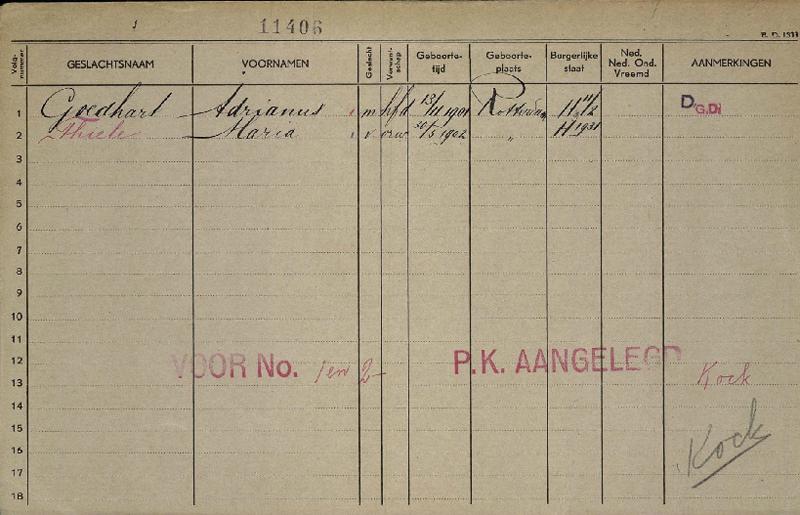 11406
B. D. 1533
Volg-nummer GESLACHTSNAAM VOORNAMEN Geslacht Verwant-schap Geboorte-tijd Geboorte-plaats Burgerlijke staat Ned. Ned. Ond. Vreemd AANMERKINGEN
1 Goedhart Adrianus m hfd 13/11 1901 Rotterdam H D G.Di
2 Thiele Maria v vrw 30/5 1902 " H 1931
3
4
5
6
7
8
9
10
11
12 VOOR No. 1 en 2 P.K. AANGELEGD
13 Kock
14
15
16 Kock
17
18